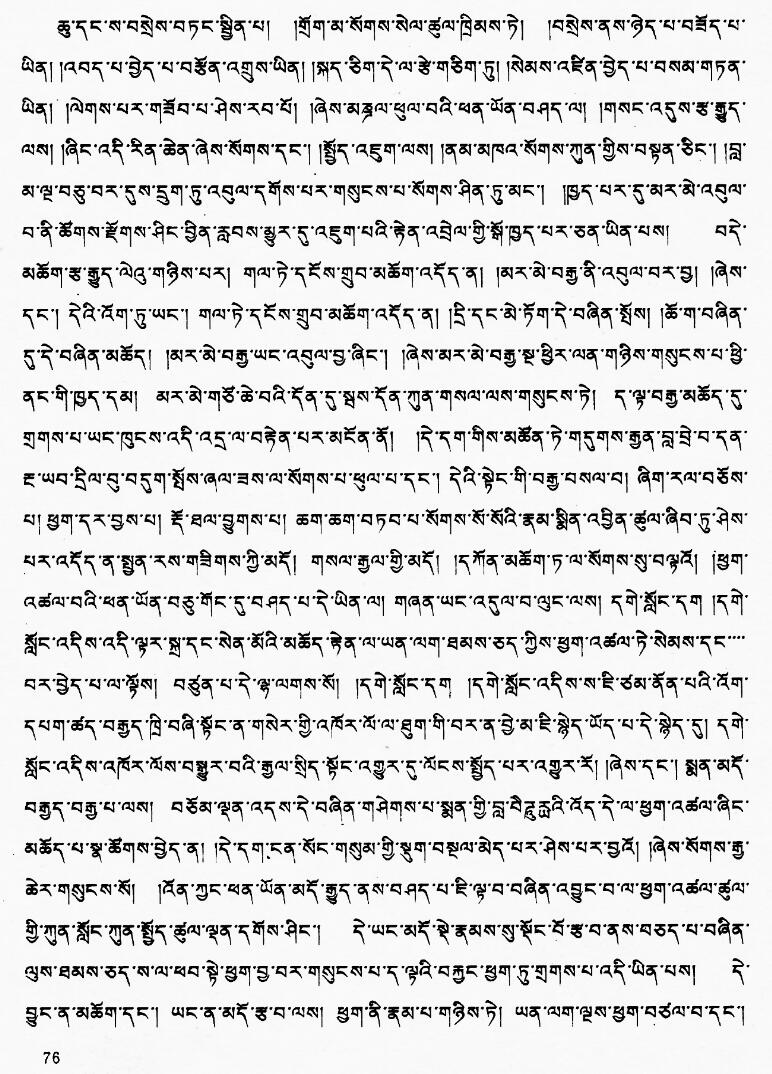 ཆུ་དང་ས་བསྲེས་བཏང་སྦྱིན་པ། །གྲོག་མ་སོགས་སེལ་ཚུལ་ཁྲིམས་ཏེ། །བསྲེས་ནས་ཉེད་པ་བཟོད་པ་
ཡིན། །འབད་པ་བྱེད་པ་བརྩོན་འགྲུས་ཡིན། །སྐད་ཅིག་དེ་ལ་རྩེ་གཅིག་ཏུ། །སེམས་འཛིན་བྱེད་པ་བསམ་གཏན་
ཡིན། །ལེགས་པར་གཟོབ་པ་ཤེས་རབ་པོ། །ཞེས་མཎྜལ་ཕུལ་བའི་ཕན་ཡོན་བཤད་ལ། །གསང་འདུས་རྩ་རྒྱུད་
ལས། །ཞིང་འདི་རིན་ཆེན་ཞེས་སོགས་དང་། །སྤྱོད་འཇུག་ལས། །ནམ་མཁའ་སོགས་ཀུན་གྱིས་བསྟན་ཅིང་། །བླ་
མ་ལྔ་བཅུ་བར་དུས་དྲུག་ཏུ་འབུལ་དགོས་པར་གསུངས་པ་སོགས་ཤིན་ཏུ་མང་། །ཁྱད་པར་དུ་མར་མེ་འབུལ་
བ་ནི་ཚོགས་རྫོགས་ཤིང་བྱིན་རླབས་མྱུར་དུ་འཇུག་པའི་རྟེན་འབྲེལ་གྱི་སྒོ་ཁྱད་པར་ཅན་ཡིན་པས། བདེ་
མཆོག་རྩ་རྒྱུད་ལེའུ་གཉིས་པར། གལ་ཏེ་དངོས་གྲུབ་མཆོག་འདོད་ན། །མར་མེ་བརྒྱ་ནི་འབུལ་བར་བྱ། །ཞེས་
དང་། དེའི་འོག་ཏུ་ཡང་། གལ་ཏེ་དངོས་གྲུབ་མཆོག་འདོད་ན། །དྲི་དང་མེ་ཏོག་དེ་བཞིན་སྤོས། །ཆོ་ག་བཞིན་
དུ་དེ་བཞིན་མཆོད། །མར་མེ་བརྒྱ་ཡང་འབུལ་བྱ་ཞིང་། །ཞེས་མར་མེ་བརྒྱ་སྔ་ཕྱིར་ལན་གཉིས་གསུངས་པ་ཕྱི་
ནང་གི་ཁྱད་དམ། མར་མེ་གཙོ་ཆེ་བའི་དོན་དུ་སྦས་དོན་ཀུན་གསལ་ལས་གསུངས་ཏེ། ད་ལྟ་བརྒྱ་མཆོད་དུ་
གྲགས་པ་ཡང་ཁུངས་འདི་འདྲ་ལ་བརྟེན་པར་མངོན་ནོ། །དེ་དག་གིས་མཚོན་ཏེ་གདུགས་རྒྱན་བླ་བྲེ་བ་དན་
རྔ་ཡབ་དྲིལ་བུ་བདུག་སྤོས་ཞལ་ཟས་ལ་སོགས་པ་ཕུལ་པ་དང་། དེའི་སྟེང་གི་བརྒྱ་བསལ་བ། ཞིག་རལ་བཅོས་
པ། ཕྱག་དར་བྱས་པ། རྡོ་ཐལ་བྱུགས་པ། ཆག་ཆག་བཏབ་པ་སོགས་སོ་སོའི་རྣམ་སྨིན་འབྱིན་ཚུལ་ཞིབ་ཏུ་ཤེས་
པར་འདོད་ན་སྤྱན་རས་གཟིགས་ཀྱི་མདོ། གསལ་རྒྱལ་གྱི་མདོ། །དཀོན་མཆོག་ཏ་ལ་སོགས་སུ་བལྟའོ། །ཕྱག་
འཚལ་བའི་ཕན་ཡོན་བཅུ་གོང་དུ་བཤད་པ་དེ་ཡིན་ལ། གཞན་ཡང་འདུལ་བ་ལུང་ལས། དགེ་སློང་དག །དགེ་
སློང་འདིས་འདི་ལྟར་སྐྲ་དང་སེན་མོའི་མཆོད་རྟེན་ལ་ཡན་ལག་ཐམས་ཅད་ཀྱིས་ཕྱག་འཚལ་ཏེ་སེམས་དང་་་་
བར་བྱེད་པ་ལ་ལྟོས། བཙུན་པ་དེ་ལྟ་ལགས་སོ། །དགེ་སློང་དག །དགེ་སློང་འདིས་ས་ཇི་ཙམ་ནོན་པའི་འོག་
དཔག་ཚད་བརྒྱད་ཁྲི་བཞི་སྟོང་ན་གསེར་གྱི་འཁོར་ལོ་ལ་ཐུག་གི་བར་ན་བྱེ་མ་ཇི་སྙེད་ཡོད་པ་དེ་སྙེད་དུ། དགེ་
སློང་འདིས་འཁོར་ལོས་བསྒྱུར་བའི་རྒྱལ་སྲིད་སྟོང་འགྱུར་དུ་ལོངས་སྤྱོད་པར་འགྱུར་རོ། །ཞེས་དང་། སྨན་མདོ་
བརྒྱད་བརྒྱ་པ་ལས། བཅོམ་ལྡན་འདས་དེ་བཞིན་གཤེགས་པ་སྨན་གྱི་བླ་བཻཌཱུརྱའི་འོད་དེ་ལ་ཕྱག་འཚལ་ཞིང་
མཆོད་པ་སྣ་ཚོགས་བྱེད་ན། །དེ་དག་ངན་སོང་གསུམ་གྱི་སྡུག་བསྔལ་མེད་པར་ཤེས་པར་བྱའོ། །ཞེས་སོགས་རྒྱ་
ཆེར་གསུངས་སོ། །འོན་ཀྱང་ཕན་ཡོན་མདོ་རྒྱུད་ནས་བཤད་པ་ཇི་ལྟ་བ་བཞིན་འབྱུང་བ་ལ་ཕྱག་འཚལ་ཚུལ་
གྱི་ཀུན་སློང་ཀུན་སྤྱོད་ཚུལ་ལྡན་དགོས་ཤིང་། དེ་ཡང་མདོ་སྡེ་རྣམས་སུ་སྡོང་པོ་རྩ་བ་ནས་བཅད་པ་བཞིན་
ལུས་ཐམས་ཅད་ས་ལ་ཕབ་སྟེ་ཕྱག་བྱ་བར་གསུངས་པ་ད་ལྟའི་བརྐྱང་ཕྱག་ཏུ་གྲགས་པ་འདི་ཡིན་པས། དེ་
བྱུང་ན་མཆོག་དང་། ཡང་ན་མདོ་རྩ་བ་ལས། ཕྱག་ནི་རྣམ་པ་གཉིས་ཏེ། ཡན་ལག་ལྔས་ཕྱག་བཙལ་བ་དང་།
76